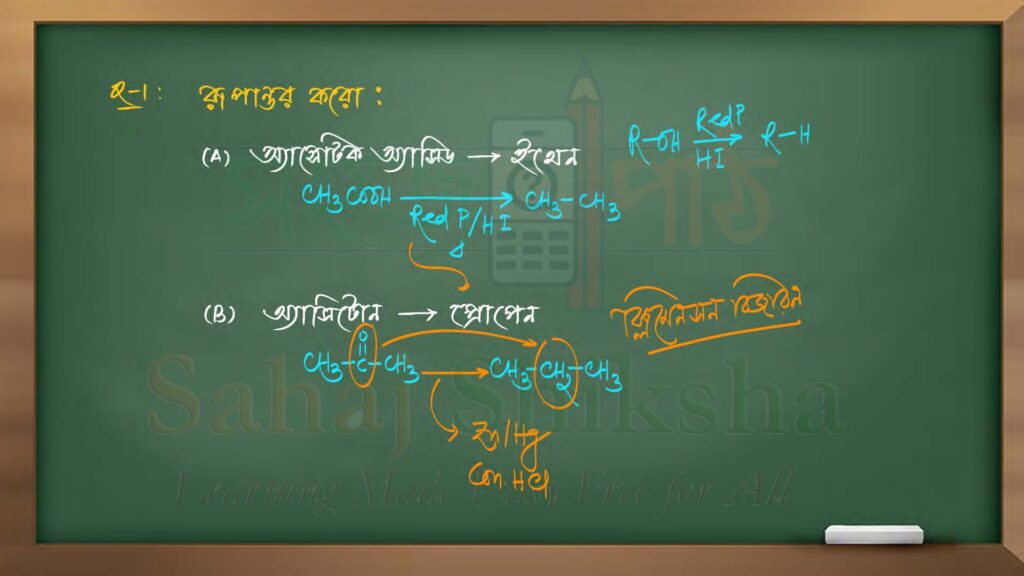 Q-1: রূপান্তর করো :
(A) অ্যাসেটিক অ্যাসিড → ইথেন
R-OH Red P → HI R-H
CH3COOH → CH3-CH3
Red P/HI
Δ
(B) অ্যাসিটোন → প্রোপেন
ক্লিমেনসন বিজারন
O
CH3-C-CH3 → CH3-CH2-CH3
Zn/Hg
Con. HCl
সহজ পাঠ
Sahaj Shiksha
Learning Made Easy, Free for All